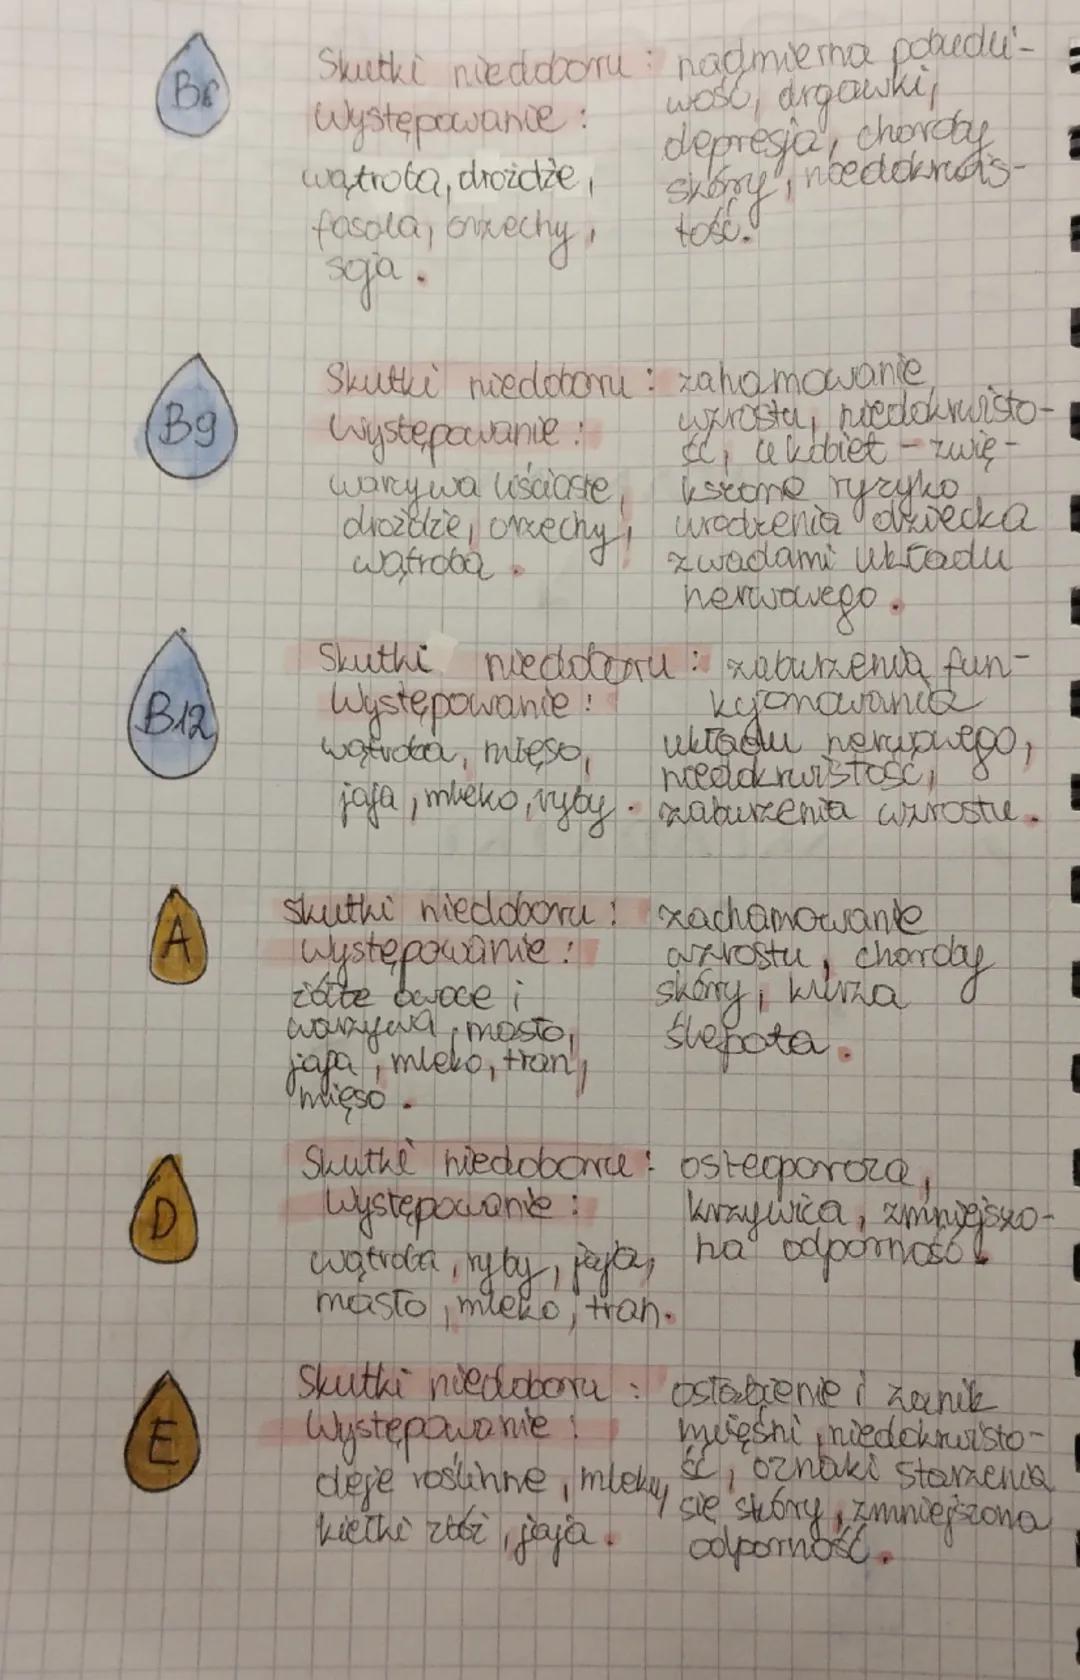 B6
Skutki niedoboru : nadmierna pobudli-
Występowanie : wość, drgawki,
depresja, choroby
wątroba, drożdże, skóry, niedokrwis-
fasola, orzechy, tość.
soja.
B9
Skutki niedoboru : zahamowanie
Występowanie : wzrostu, niedokrwisto-
ść, u kobiet - zwię-
warzywa liściaste, kszone ryzyko
drożdże, orzechy, urodzenia dziecka
wątroba. z wadami układu
nerwowego.
B12
Skutki niedoboru : zaburzenia fun-
Występowanie : kcjonowania
wątroba, mięso, układu nerwowego,
niedokrwistość,
jaja, mleko, ryby. zaburzenia wzrostu.
A
Skutki niedoboru : zachamowanie
Występowanie : wzrostu, choroby
żółte owoce i skóry, kurza
warzywa, masło, ślepota.
jaja, mleko, tran,
mięso.
D
Skutki niedoboru : osteoporoza,
Występowanie : krzywica, zmniejszo-
wątroba, ryby, jaja, na odporność.
masło, mleko, tran.
E
Skutki niedoboru : osłabienie i zanik
Występowanie : mięśni, niedokrwisto-
oleje roślinne, mleko, ść, oznaki starzenia
się skóry, zmniejszona
kiełki zbóż, jaja. odporność.